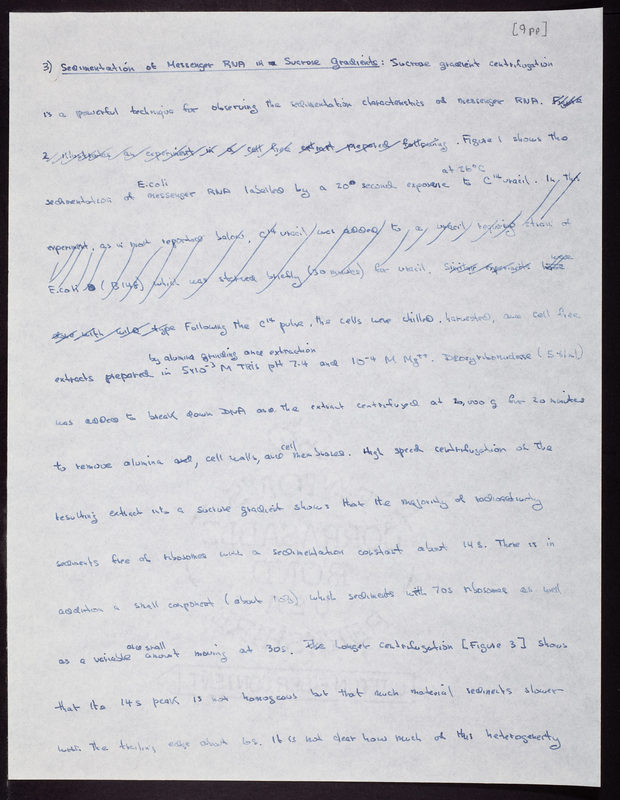 [9pp]
3) Sedimentation of Messenger RNA in Sucrose Gradients: Sucrose gradient centrifugation
is a powerful technique for observing the sedimentation characteristics of messenger RNA. Figure
2 illustrates an experiment in a cell free extract prepared following. Figure 1 shows the
at 26°C
E.coli
sedimentation of messenger RNA labelled by a 20 second exposure to C14 uracil. In this
experiment, as in most reported below, C14 uracil was added to a uracil requiring strain of
E.coli (B148) which was starved briefly (30 minutes) for uracil. Similar experiments were
done with wild type Following the C14 pulse, the cells were chilled, harvested, and cell free
by alumina grinding and extraction
extracts prepared in 5x10-3 M TRIS pH 7.4 and 10-4 M Mg++. Deoxyribonuclease (5 /ml)
was added to break down DNA and the extract centrifuged at 20,000 g for 20 minutes
cell
to remove alumina, cell walls, and membranes. High speed centrifugation of the
resulting extract into a sucrose gradient shows that the majority of radioactivity
sediments free of ribosomes with a sedimentation constant about 14s. There is in
addition a small component (about 10%) which sediments with 70s ribosomes as well
and small
as a variable amount moving at 30s. Longer centrifugation [Figure 3] shows
that the 14s peak is not homogous but that much material sediments slower
with the trailing edge about 6s. It is not clear how much of this heterogeneity